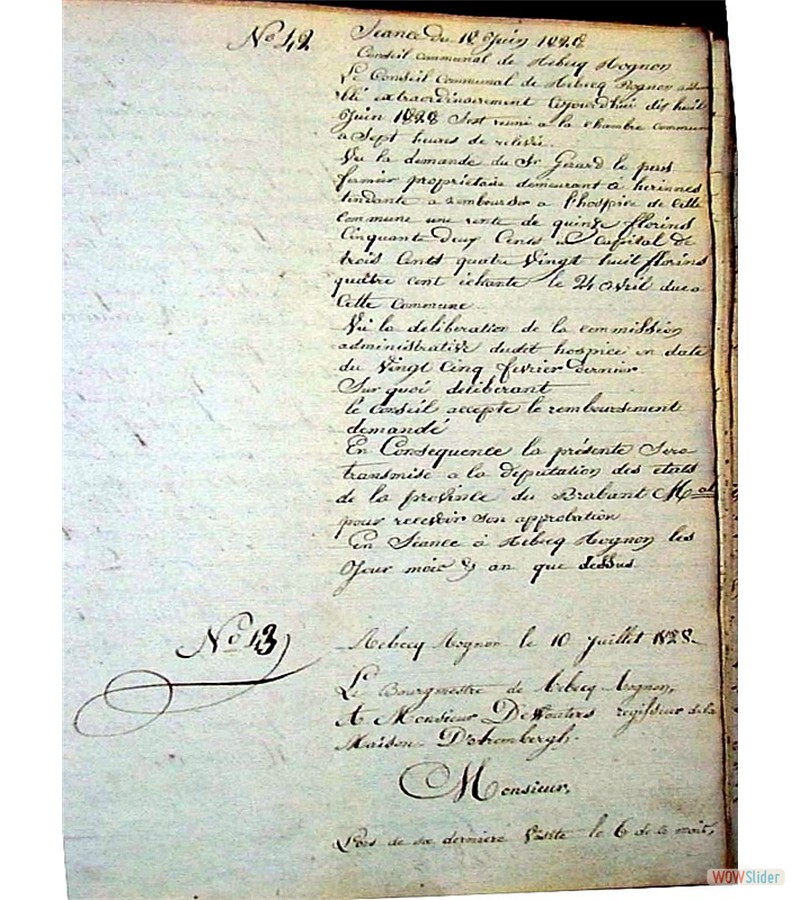 No 42
Séance du 18 Juin 1828
Conseil communal de Rebecq Rognon
Le Conseil Communal de Rebecq Rognon assem
blé extraordinairement cejourd'hui dix huit
Juin 1828 s'est reuni a la chambre commune
a Sept heures de relevée.
Vu la demande du Sr Gerard le
fermier propriétaire demeurant à herinnes
tendante a rembourser a l'hospice de cette
commune une rente de quinze florins
Cinquante deux Cents au Capital de
trois Cents quatre Vingt huit florins
quatre cent échante le 24 avril due a
Cette Commune
Vu la deliberation de la commission
administrative dudit hospice en date
du Vingt Cinq fevrier dernier
Sur quoi deliberant
le Conseil accepte le remboursement
demandé
En Consequence la présente Sera
transmise a la deputation des états
de la province du Brabant Mal
pour recevoir son approbation
En Séance à Rebecq Rognon les
Jour mois & an que dessus
No 43
Rebecq Rognon le 10 Juillet 1828.
Le Bourgmestre de Rebecq-Rognon,
A Monsieur regisseur de la
Maison D'aremberg.
Monsieur,
Lors de sa derniere Visite le 6 de ce mois,
WOWSlider